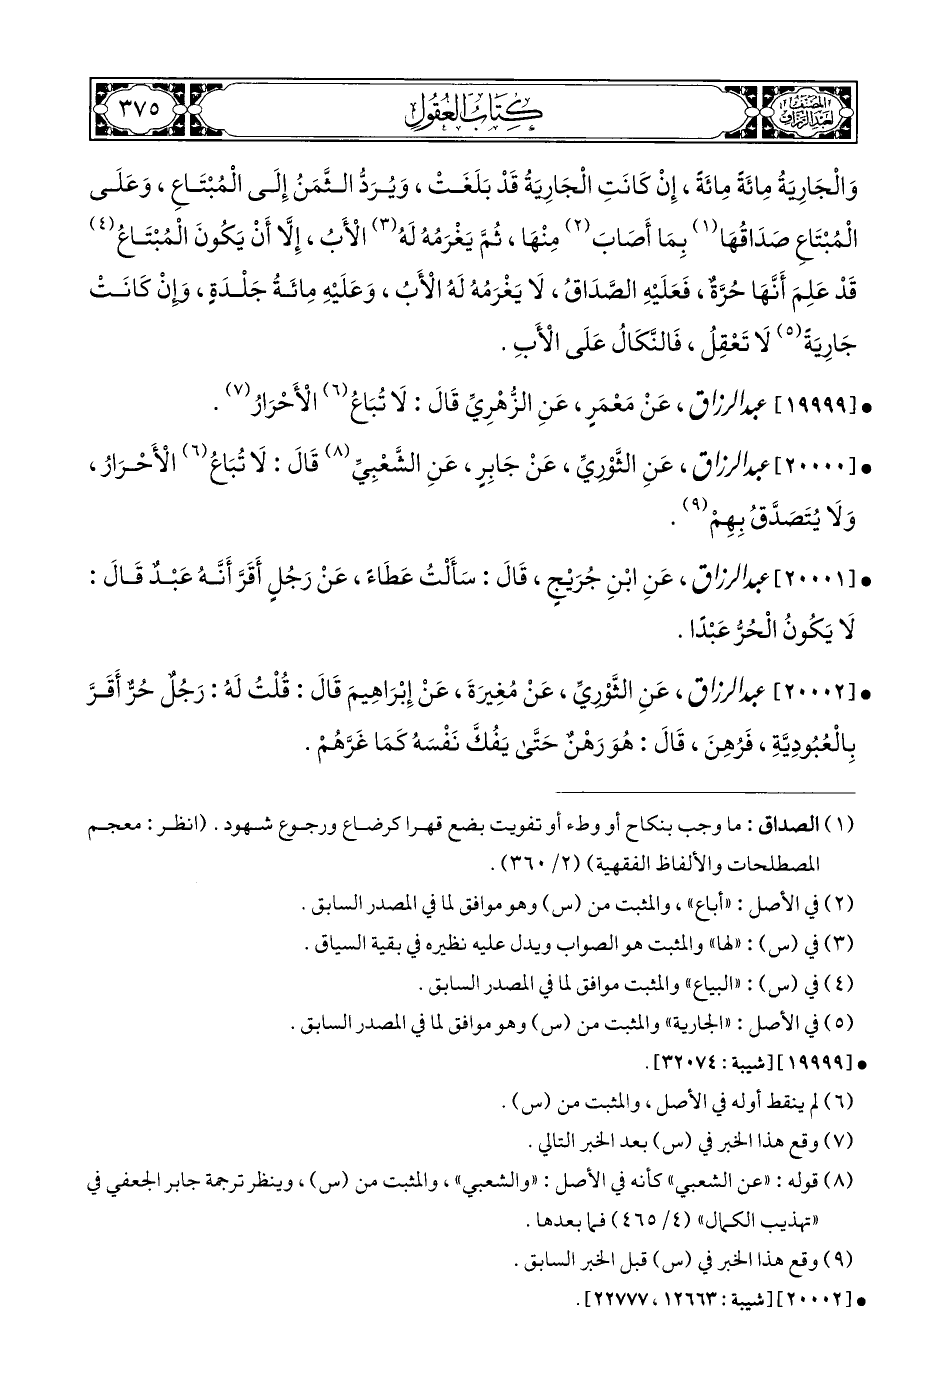 المصنف لعبد الرزاق
كتاب العقول
٣٧٥
وَالْجَارِيَةُ مِائَةً مِائَةً ، إِنْ كَانَتِ الْجَارِيَةُ قَدْ بَلَغَتْ ، وَيُرَدُّ الثَّمَنُ إِلَى الْمُبْتَاعِ ، وَعَلَى
الْمُبْتَاعِ صَدَاقُهَا(١) بِمَا أَصَابَ(٢) مِنْهَا ، ثُمَّ يَغْرَمُهُ لَهُ(٣) الْأَبُ ، إِلَّا أَنْ يَكُونَ الْمُبْتَاعُ(٤)
قَدْ عَلِمَ أَنَّهَا حُرَّةٌ ، فَعَلَيْهِ الصَّدَاقُ ، لَا يَغْرَمُهُ لَهُ الْأَبُ ، وَعَلَيْهِ مِائَةُ جَلْدَةٍ ، وَإِنْ كَانَتْ
جَارِيَةً(٥) لَا تَعْقِلُ ، فَالنَّكَالُ عَلَى الْأَبِ .
• [١٩٩٩٩] عبد الرزاق ، عَنْ مَعْمَرٍ ، عَنِ الزُّهْرِيِّ قَالَ : لَا تُبَاعُ(٦) الْأَحْرَارُ(٧) .
• [٢٠٠٠٠] عبد الرزاق ، عَنِ الثَّوْرِيِّ ، عَنْ جَابِرٍ ، عَنِ الشَّعْبِيِّ(٨) قَالَ : لَا تُبَاعُ(٦) الْأَحْرَارُ ،
وَلَا يُتَصَدَّقُ بِهِمْ(٩) .
• [٢٠٠٠١] عبد الرزاق ، عَنِ ابْنِ جُرَيْجٍ ، قَالَ : سَأَلْتُ عَطَاءً ، عَنْ رَجُلٍ أَقَرَّ أَنَّهُ عَبْدٌ قَالَ :
لَا يَكُونُ الْحُرُّ عَبْدًا .
• [٢٠٠٠٢] عبد الرزاق ، عَنِ الثَّوْرِيِّ ، عَنْ مُغِيرَةَ ، عَنْ إِبْرَاهِيمَ قَالَ : قُلْتُ لَهُ : رَجُلٌ حُرٌّ أَقَرَّ
بِالْعُبُودِيَّةِ ، فَرُهِنَ ، قَالَ : هُوَ رَهْنٌ حَتَّى يَفُكَّ نَفْسَهُ كَمَا غَرَّهُمْ .
(١) الصداق : ما وجب بنكاح أو وطء أو تفويت بضع قهرا كرضاع ورجوع شهود . (انظر : معجم
المصطلحات والألفاظ الفقهية) (٢/ ٣٦٠) .
(٢) في الأصل : «أباع» ، والمثبت من (س) وهو موافق لما في المصدر السابق .
(٣) في (س) : «لها» والمثبت هو الصواب ويدل عليه نظيره في بقية السياق .
(٤) في (س) : «البياع» والمثبت موافق لما في المصدر السابق .
(٥) في الأصل : «الجارية» والمثبت من (س) وهو موافق لما في المصدر السابق .
• [١٩٩٩٩] [شيبة : ٣٢٠٧٤] .
(٦) لم ينقط أوله في الأصل ، والمثبت من (س) .
(٧) وقع هذا الخبر في (س) بعد الخبر التالي .
(٨) قوله : «عن الشعبي» كأنه في الأصل : «والشعبي» ، والمثبت من (س) ، وينظر ترجمة جابر الجعفي في
«تهذيب الكمال» (٤/ ٤٦٥) فما بعدها .
(٩) وقع هذا الخبر في (س) قبل الخبر السابق .
• [٢٠٠٠٢] [شيبة : ١٢٦٦٣ ، ٢٢٧٧٧] .